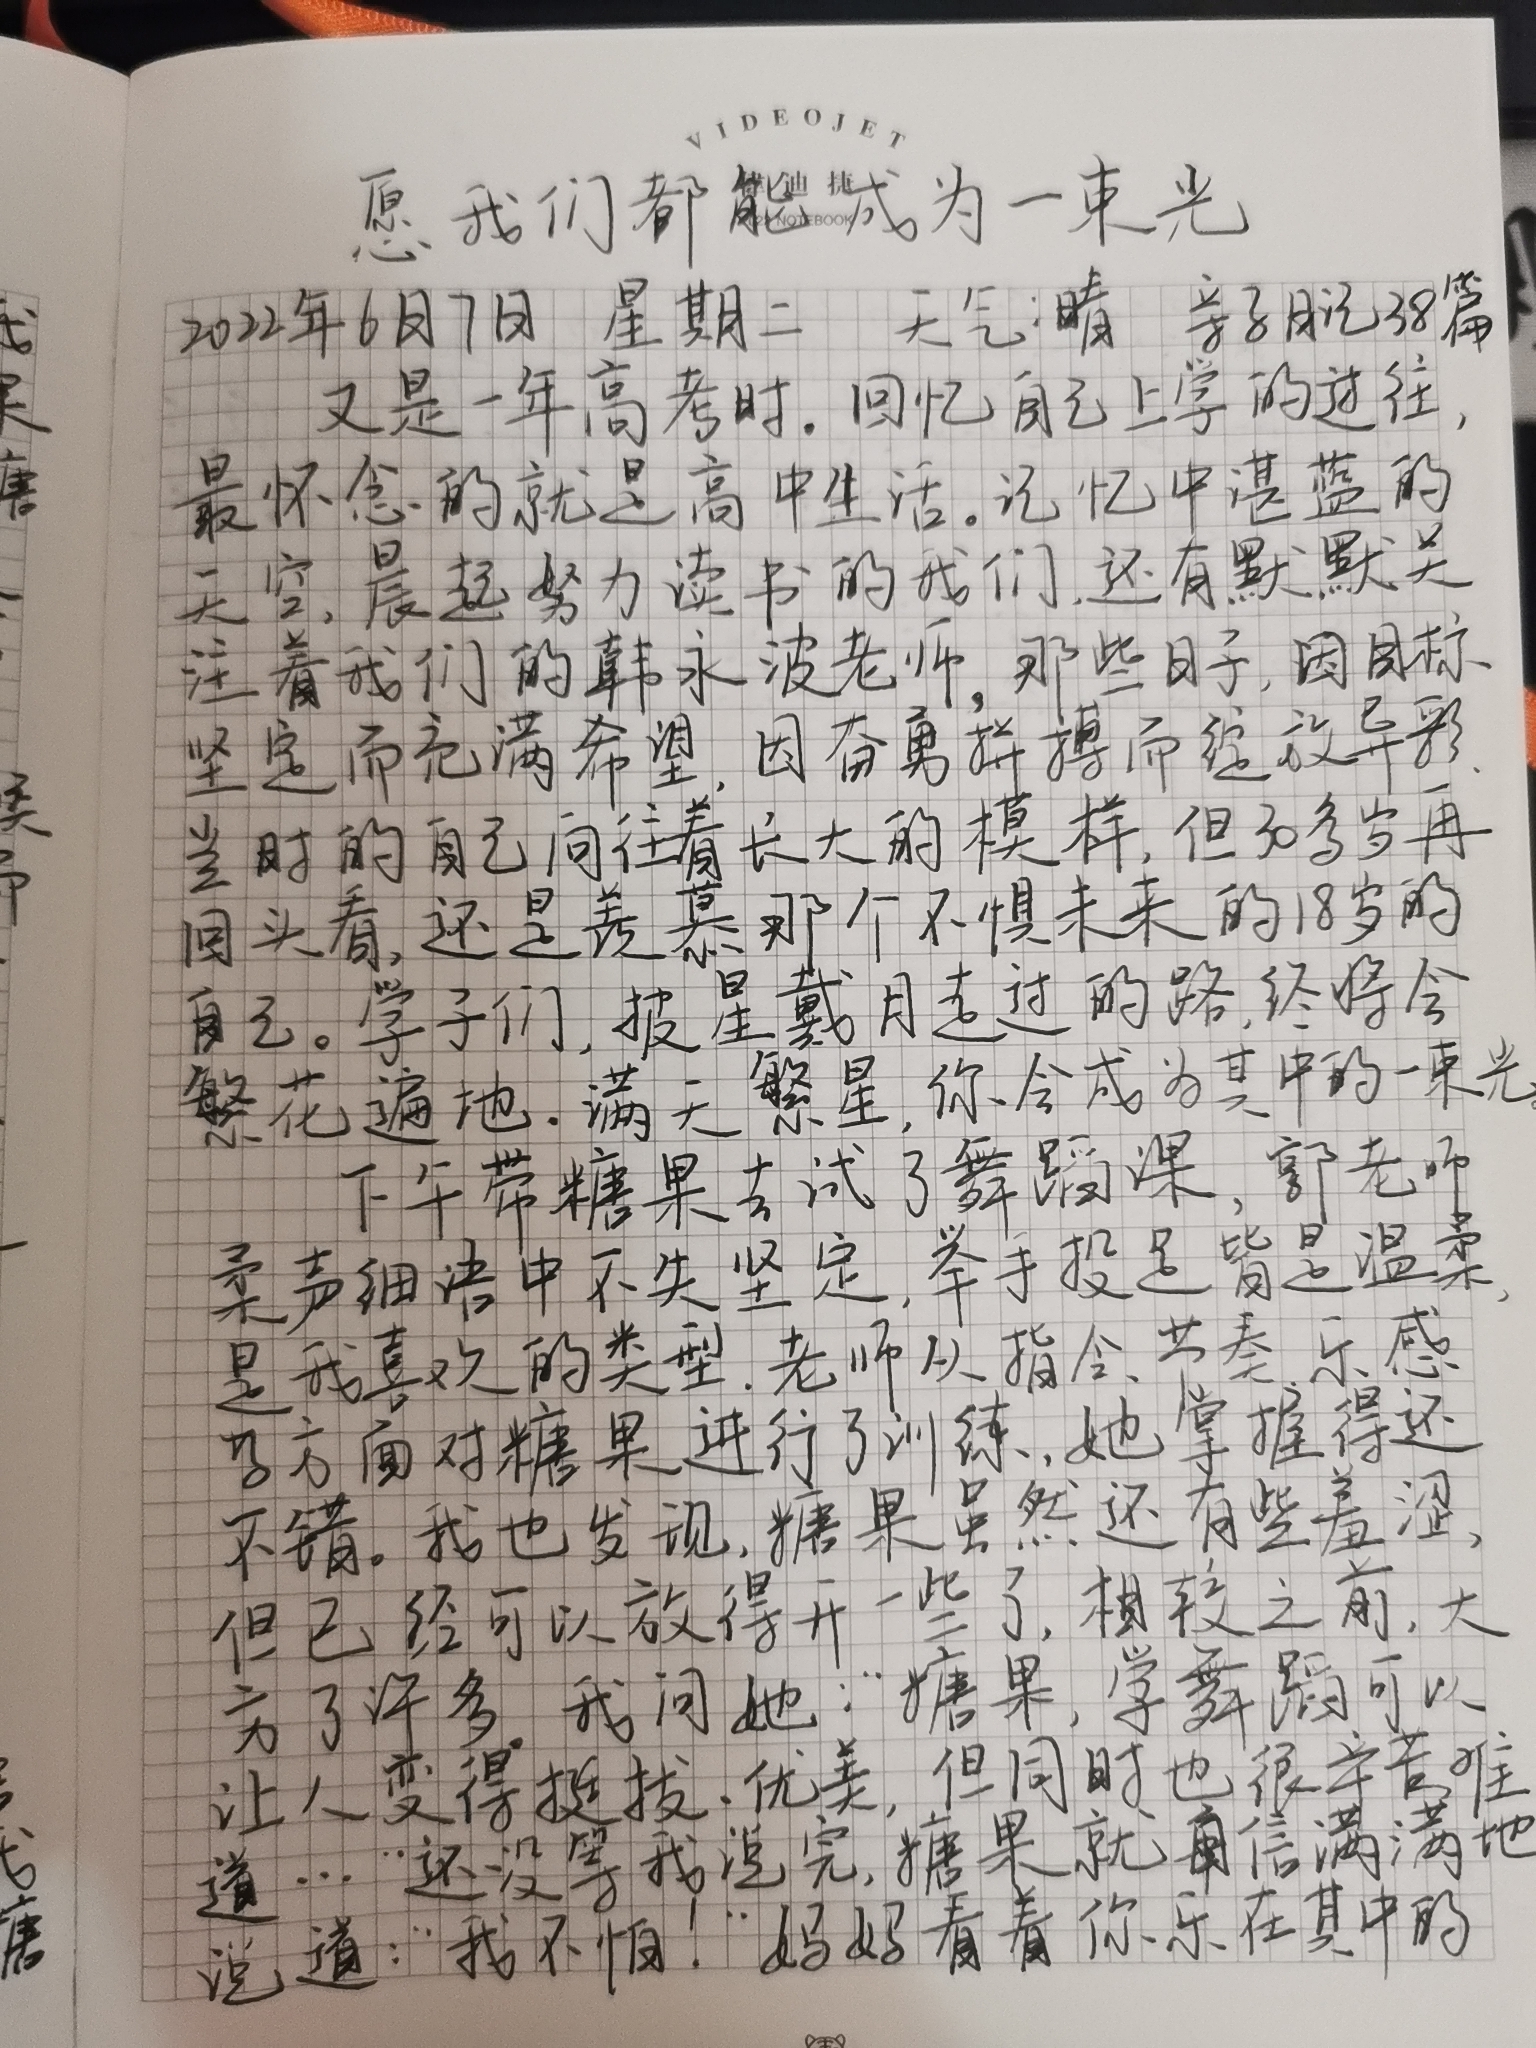 VIDEOJET
愿我们都能成为一束光
2022年6月7日 星期二 天气:晴 亲子日记38篇
又是一年高考时。回忆自己上学的过往,
最怀念的就是高中生活。记忆中湛蓝的
天空,晨起努力读书的我们,还有默默关
注着我们的韩永波老师,那些日子,因目标
坚定而充满希望,因奋勇拼搏而绽放异彩.
当时的自己向往着长大的模样,但30多岁再
回头看,还是羡慕那个不惧未来的18岁的
自己。学子们,披星戴月走过的路,终将会
繁花遍地.满天繁星,你会成为其中的一束光。
下午带糖果去试了舞蹈课,郭老师
柔声细语中不失坚定,举手投足皆是温柔,
是我喜欢的类型.老师从指令、节奏、乐感
等方面对糖果进行了训练,她掌握得还
不错。我也发现,糖果虽然还有些羞涩,
但已经可以放得开一些了,相较之前,大
方了许多。我问她:“糖果,学舞蹈可以
让人变得挺拔、优美,但同时也很辛苦,难
道…”还没等我说完,糖果就自信满满地
说道:“我不怕!”妈妈看着你乐在其中的